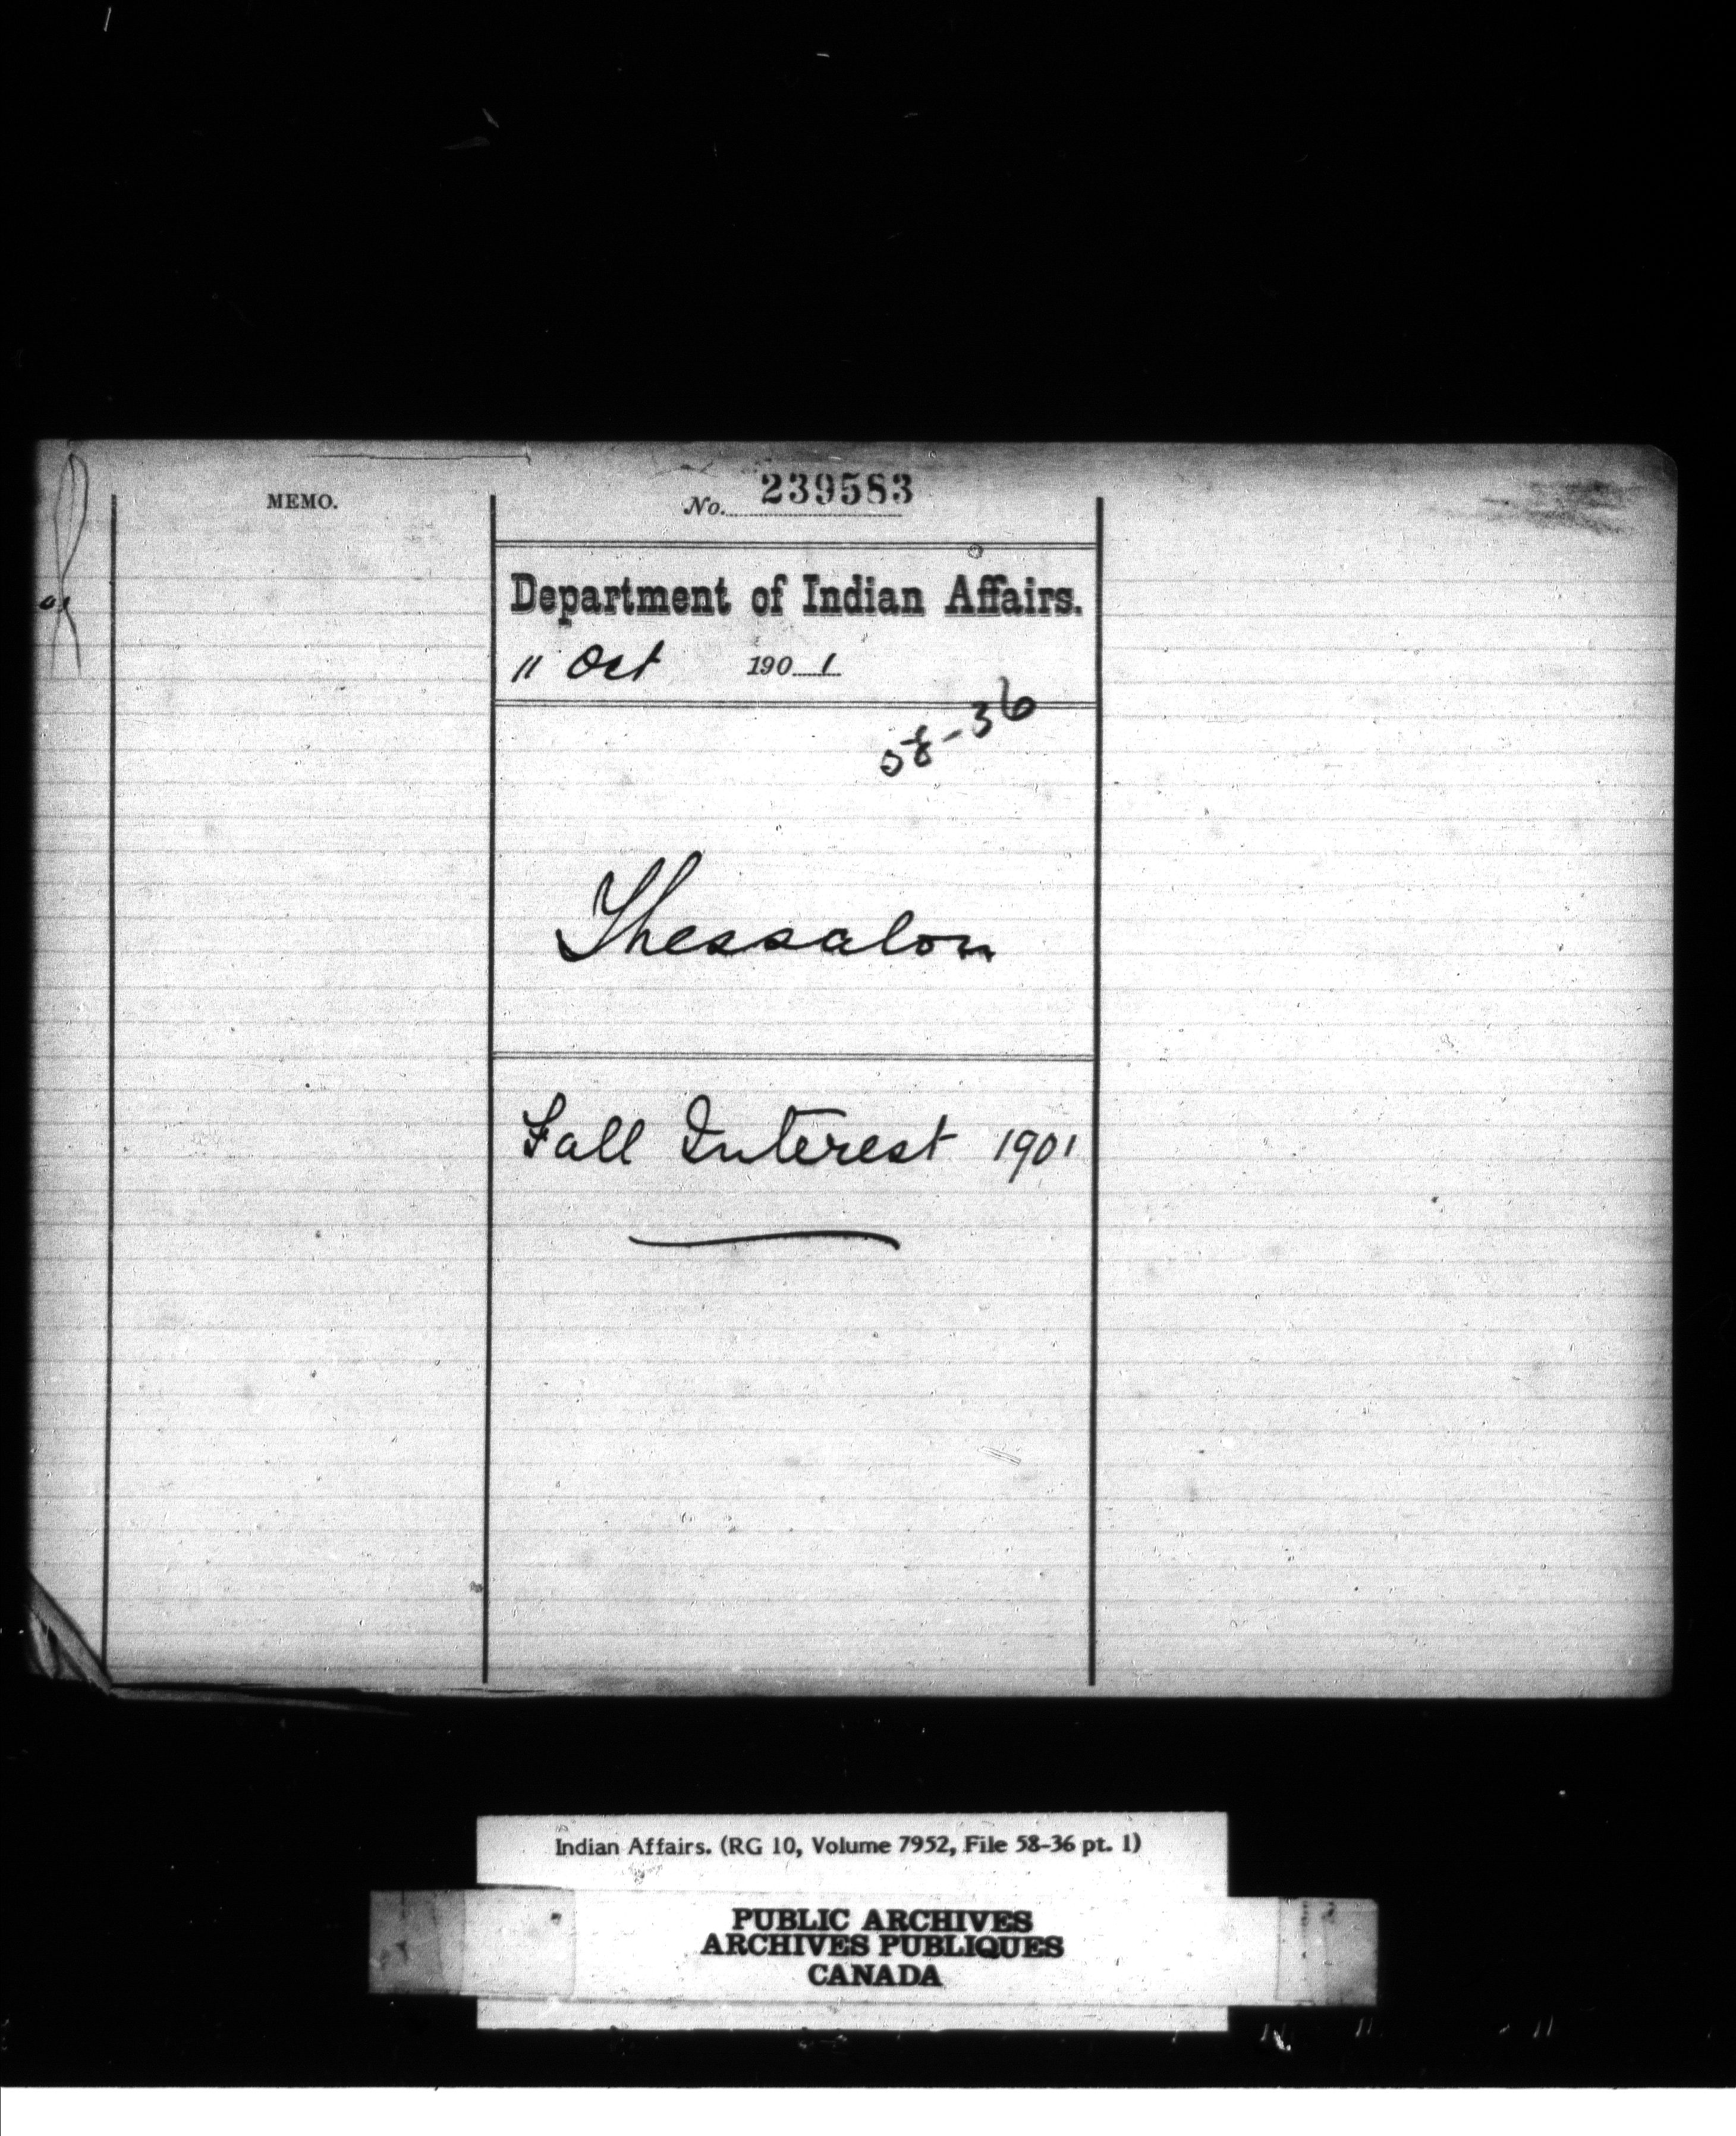 MEMO.
No. 239583
Department of Indian Affairs.
11 Oct 1901
58-36
Thessalon
Fall Interest 1901
Indian Affairs. (RG 10, Volume 7952, File 58-36 pt. 1)
PUBLIC ARCHIVES
ARCHIVES PUBLIQUES
CANADA